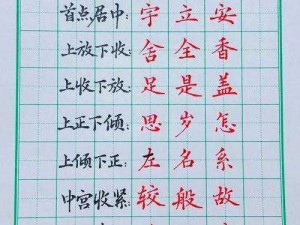 首点居中:宇立安
上放下收:舍全香
上收下放:足是盖
上正下倾:思岁怎
上倾下正:左名系
中宫收紧:较般故